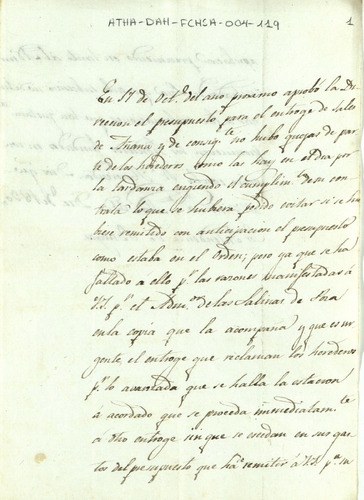 ATHA-DAH-FCHSA-004-119
1
En 17 de Oct.e del año proximo aprobó la Di-
reccion el presupuesto para el entroge de Sales
de Añana y de consig.te no hubo quejas de par-
te de los herederos como las hay en el dia por
la tardanza exigiendo el cumplim.to de su con-
trata lo que se hubiera podido evitar si se hu-
biese remitido con anticipacion el presupuesto
como estaba en el orden; pero ya que se ha
faltado a ello p.r las razones manifestadas á
V.S. p.r el Adm.or de las Salinas de Ana
en la copia que la acompaña y que es ur-
gente, el entroge que reclaman los herederos
p.r lo avanzada que se halla la estacion
á acordado que se proceda inmediatam.te
a dho entroge sin que se escedan en sus gas-
tos del presupuesto que ha remitir á V.S. p.a su